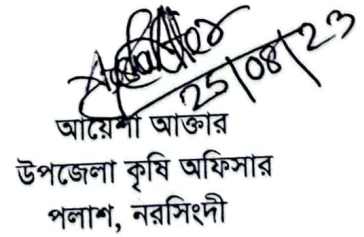 25/08/23
আয়েশা আক্তার
উপজেলা কৃষি অফিসার
পলাশ, নরসিংদী